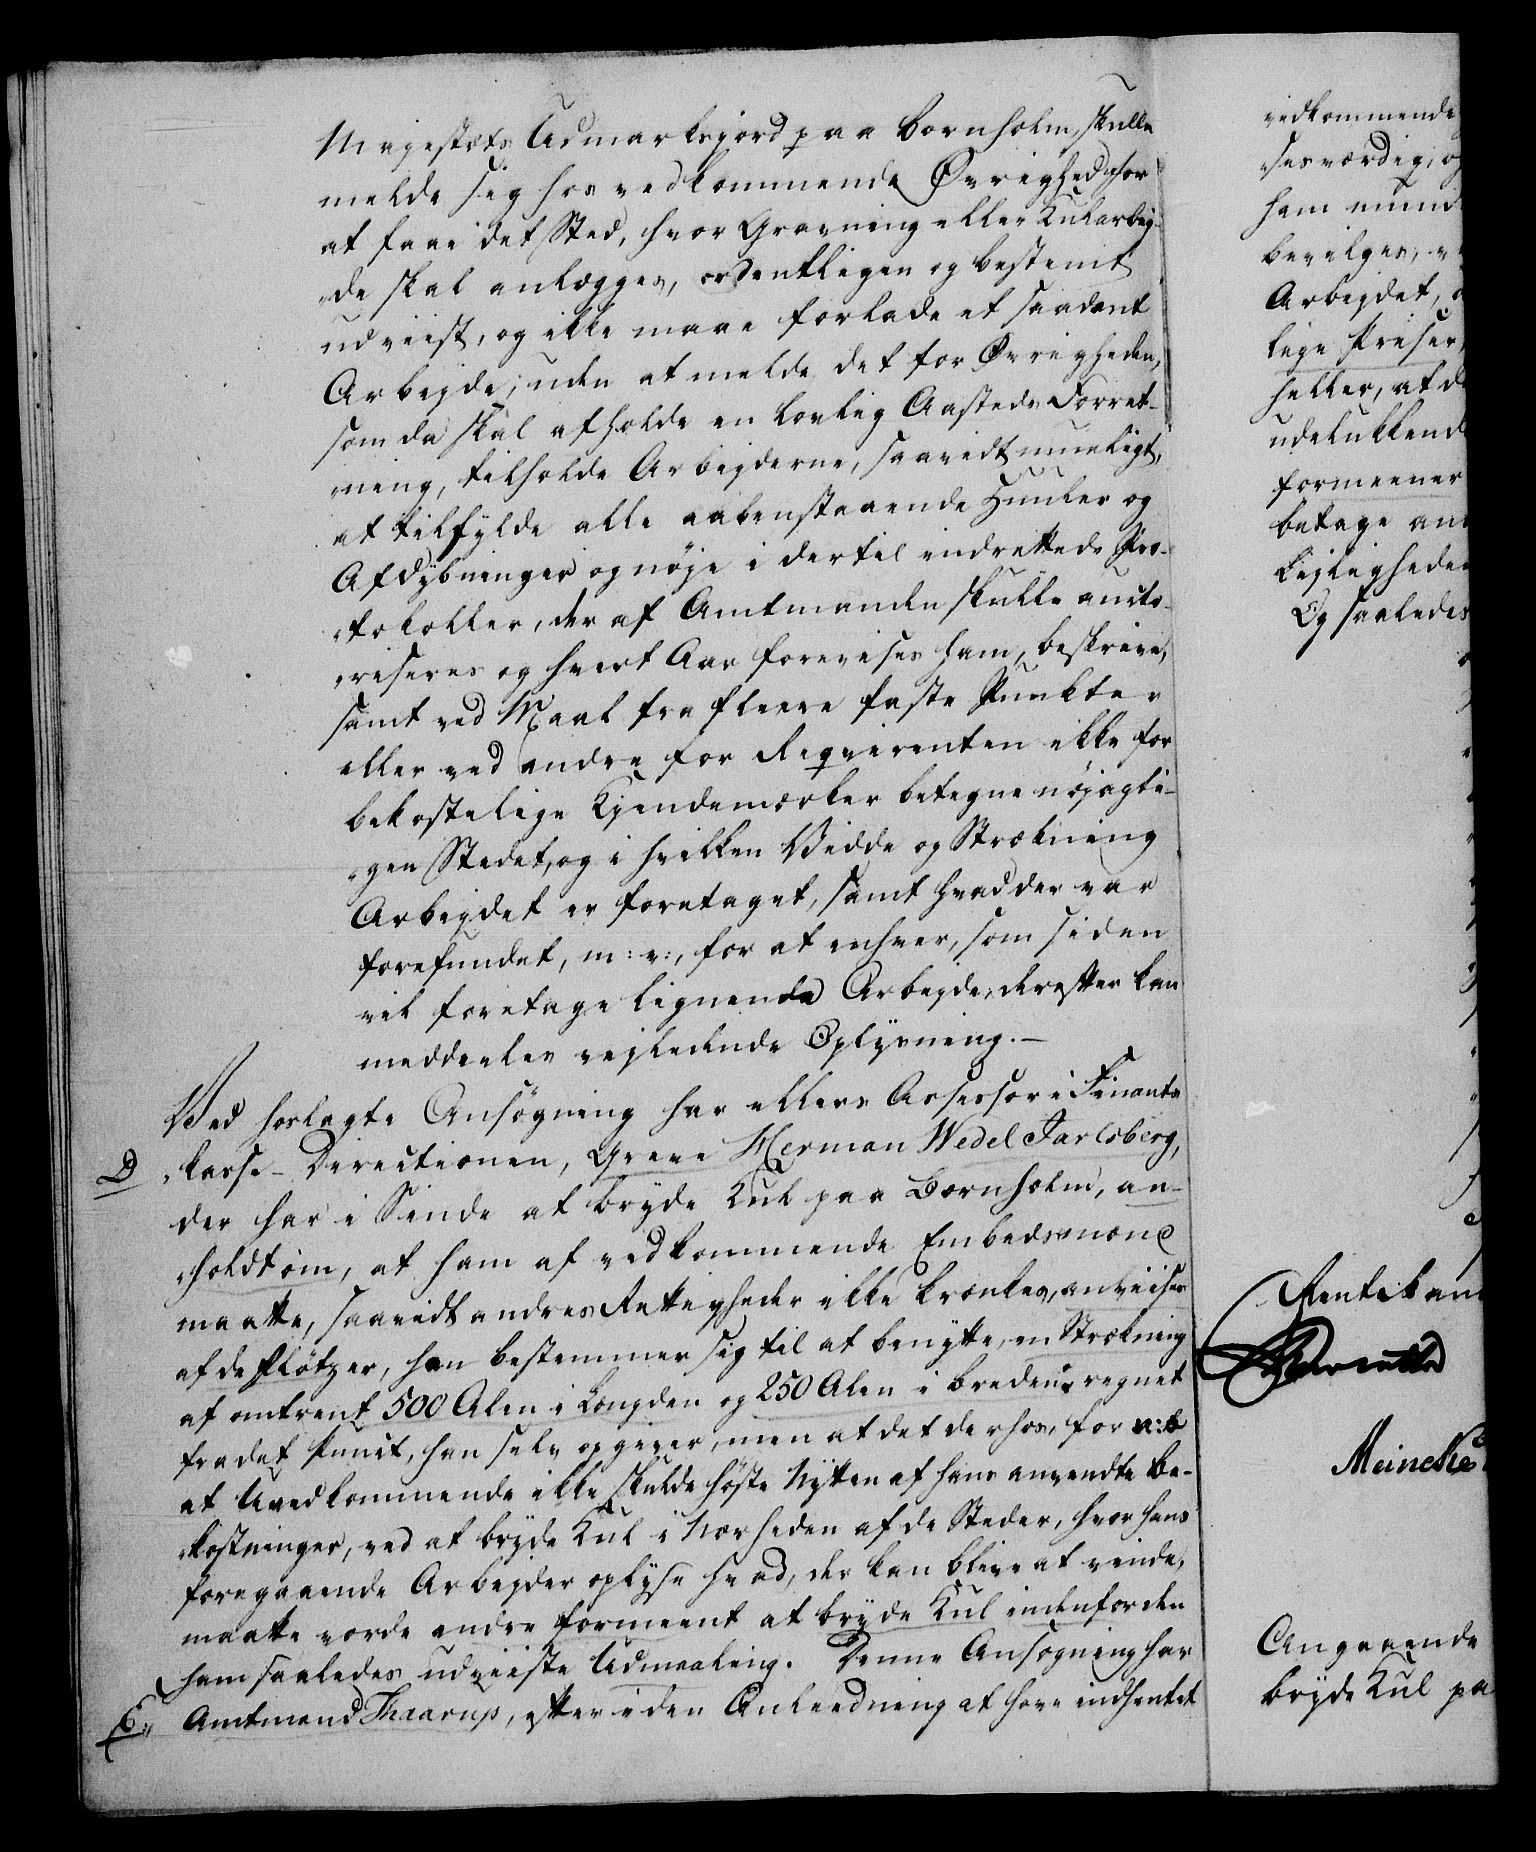 Majestæts Udmarksjord paa Bornholm, skulle
melde sig hos vedkommende Øvrighed for
at faae det Sted, hvor Gravning eller Kularbej-
„de skal anlægges, ordentligen og bestemt
udviist, og ikke maae forlade et saadant
Arbejde, uden at melde det for Øvrigheden,
som da skal afholde en lovlig Aasteds Forret-
„ning, tilholde Arbejderne, saavidt mueligt,
at tilfylde alle aabenstaaende Huuler og
Afdybninger og nøje i dertil indrettede Pro-
„tokoller, der af Amtmanden skulle aucto-
„riseres og hvert Aar forevises ham, beskrive,
samt ved Maal fra fleere faste Punkter
eller ved andre for Reqvirenten ikke for
bekostelige Kjendemærker betegne nøjagti-
„gen Stedet, og i hvilken Vidde og Strækning
Arbejdet er foretaget, samt hvad der var
forefundet, m: v:, for at enhver, som siden
vil foretage lignende Arbejde, derefter kan
meddeeles vejledende Oplysning.-
Ved hoslagte Ansøgning har ellers Assessor i Finants
D „kasse-Directionen, Greve Herman Wedel Jarlsberg,
der har i Sinde at bryde Kul paa Bornholm, an-
„holdt om, at ham af vedkommende Embedsmænd
maatte, saavidt andres Rettigheder ikke krænkes, anviises
af de Flötzer, han bestemmer sig til at benytte, en Strækning
af omtrent 500 Alen i Længden og 250 Alen i Breden, regnet
fra det Punct, han selv opgiver, men at det derhos, for
at Uvedkommende ikke skulde høste Nytten af hans anvendte Be-
„kostninger, ved at bryde Kul i Nærheden af de Steder, hvor hans
foregaaende Arbejder oplyse hvad, der kan blive at vinde,
maatte vorde andre formeent at bryde Kul indenfor den
ham saaledes udviiste Udmaaling. Denne Ansøgning har
E„ Amtmand Thaarup, efter i den Anleedning at have indhentet
vedkommende
„sesværdig, og
ham
bevilges,
Arbejdet,
lige Priser,
heller, at
udelukkende
formeener
betage
Lejligheden
Og saaledes
Rentekam
Meincke
Angaaende
bryde Kul pa